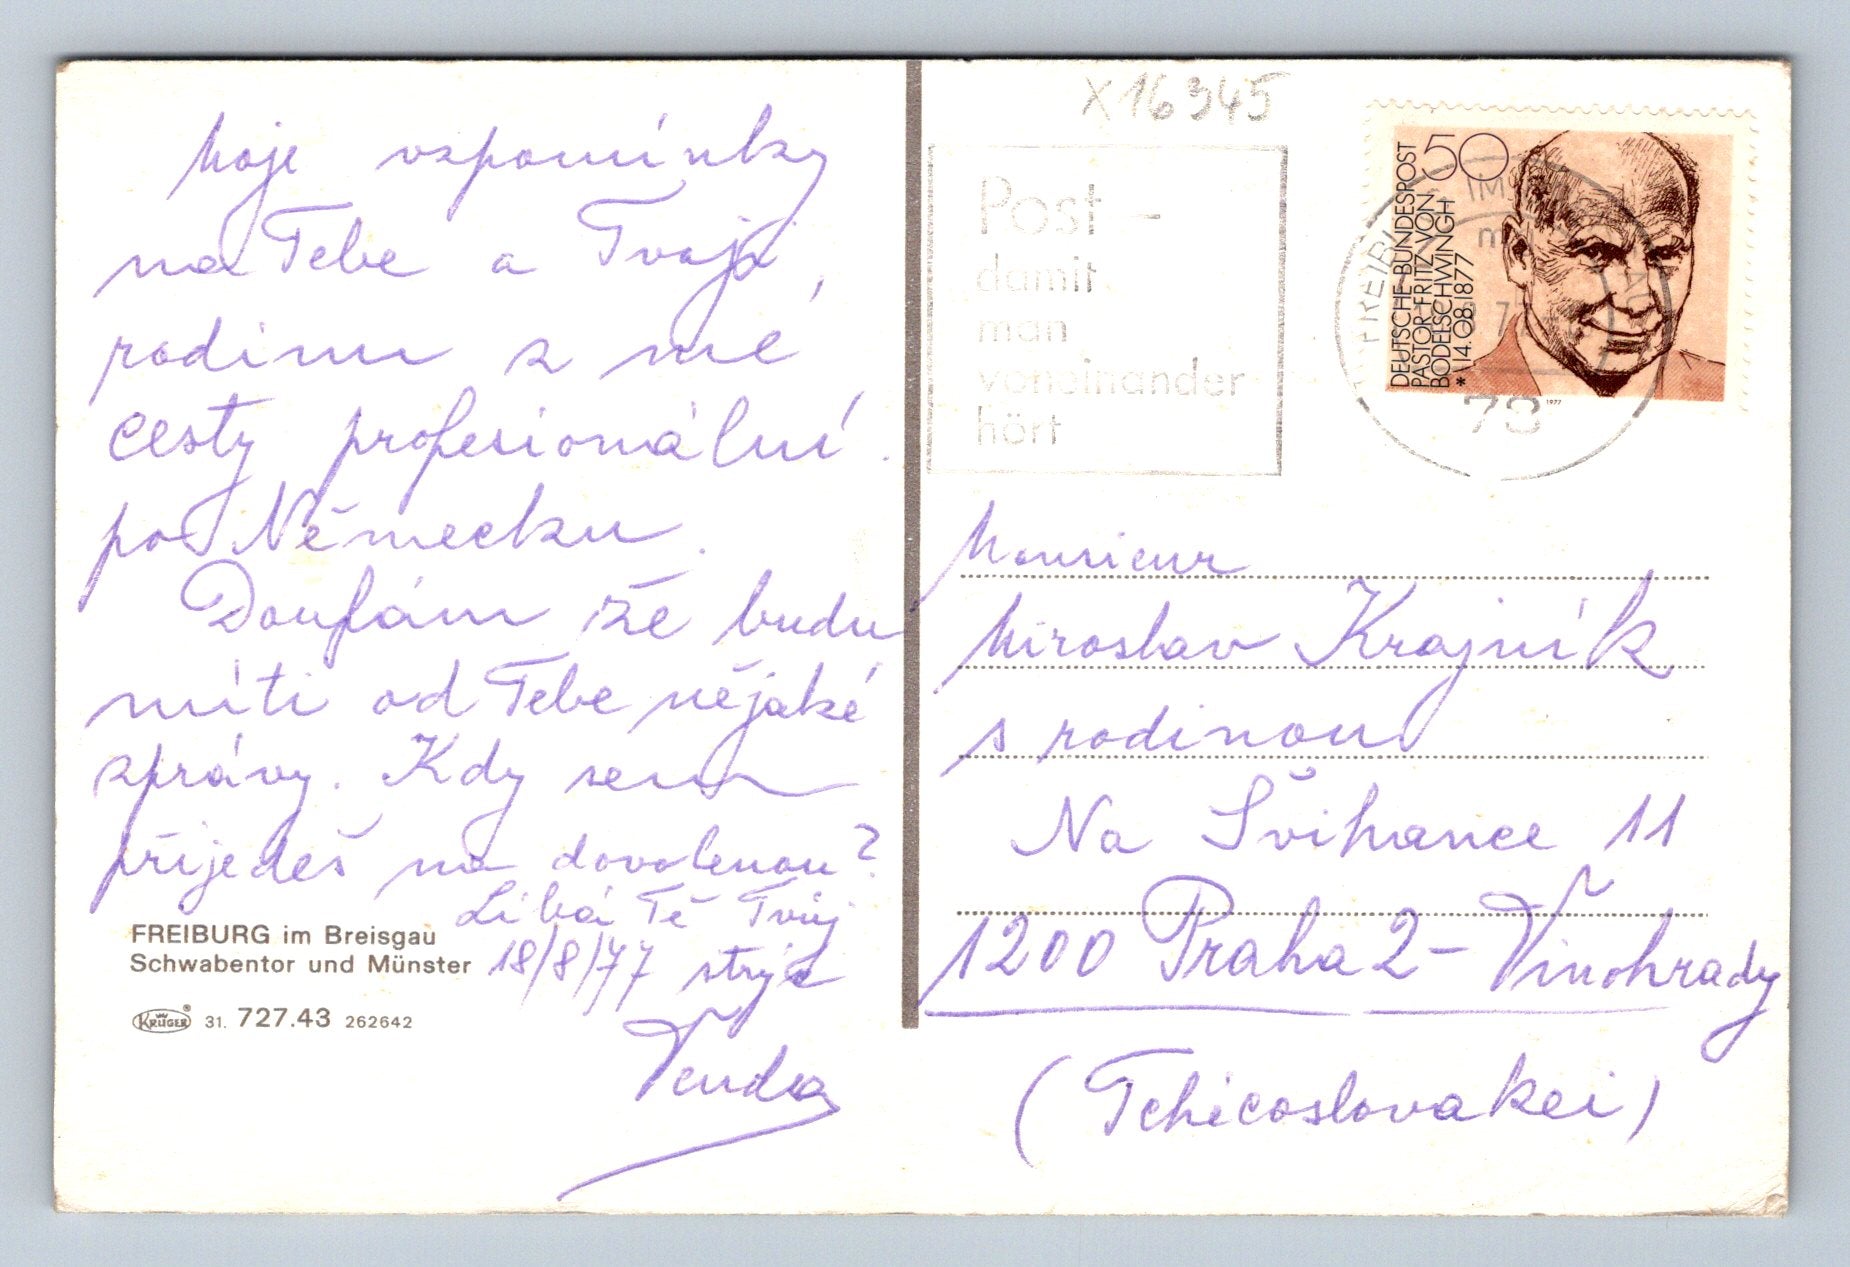 Moje vzpomínky
na Tebe a Tvoji
rodinu z mé
cesty profesionální
po Německu.
Doufám že budu
míti od Tebe nějaké
zprávy. Kdy sem
přijedeš na dovolenou?
Líbá Tě Tvůj
18/8/77 strýc
Venda
FREIBURG im Breisgau
Schwabentor und Münster
KRÜGER 31. 727.43 262642
X16345
Post –
damit
man
voneinander
hört
50
DEUTSCHE BUNDESPOST
PASTOR FRITZ VON
BODELSCHWINGH
*14.08.1877
1977
Monsieur
Miroslav Krajník
s rodinou
Na Švihance 11
1200 Praha 2 – Vinohrady
(Tchicoslovakei)